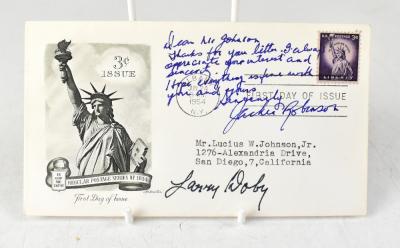 3¢
ISSUE
Dear Mr Johnson
Thanks for your letter. I always
appreciate your interest and
sincerity
Hope everything is fine with
you and yours
Sincerely
Jackie Robinson
U.S. POSTAGE 3¢
LIBERTY
1954
N.Y.
FIRST DAY OF ISSUE
Mr. Lucius W. Johnson, Jr.
1276-Alexandria Drive,
San Diego, 7, California
Larry Doby
REGULAR POSTAGE SERIES OF 1954
First Day of Issue